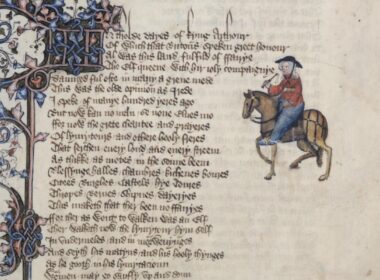 In tholde dayes of kyng Arthour
Of which that Britons speken greet honour
Al was this land fulfild of ffairye
The Elf queene with hir ioly compaignye
Daunced ful ofte in many a grene mede
This was the olde opinion as I rede
I speke of many hundred yeres ago
But now kan no man se none Elues mo
ffor now the grete charitee and prayeres
Of lymytours and othere hooly freres
That serchen euery lond and euery streem
As thikke as motes in the sonne beem
Blessynge halles chambres kichenes boures
Citees Burghes Castels hye Toures
Thropes Bernes Shipnes Dayeryes
This maketh that ther been no ffairyes
ffor ther as wont to walken was an Elf
Ther walketh now the lymytour hym self
In vndermeles and in morwenynges
And seyth his matyns and his hooly thynges
As he gooth in his lymytacioun
Wommen may go saufly vp and doun